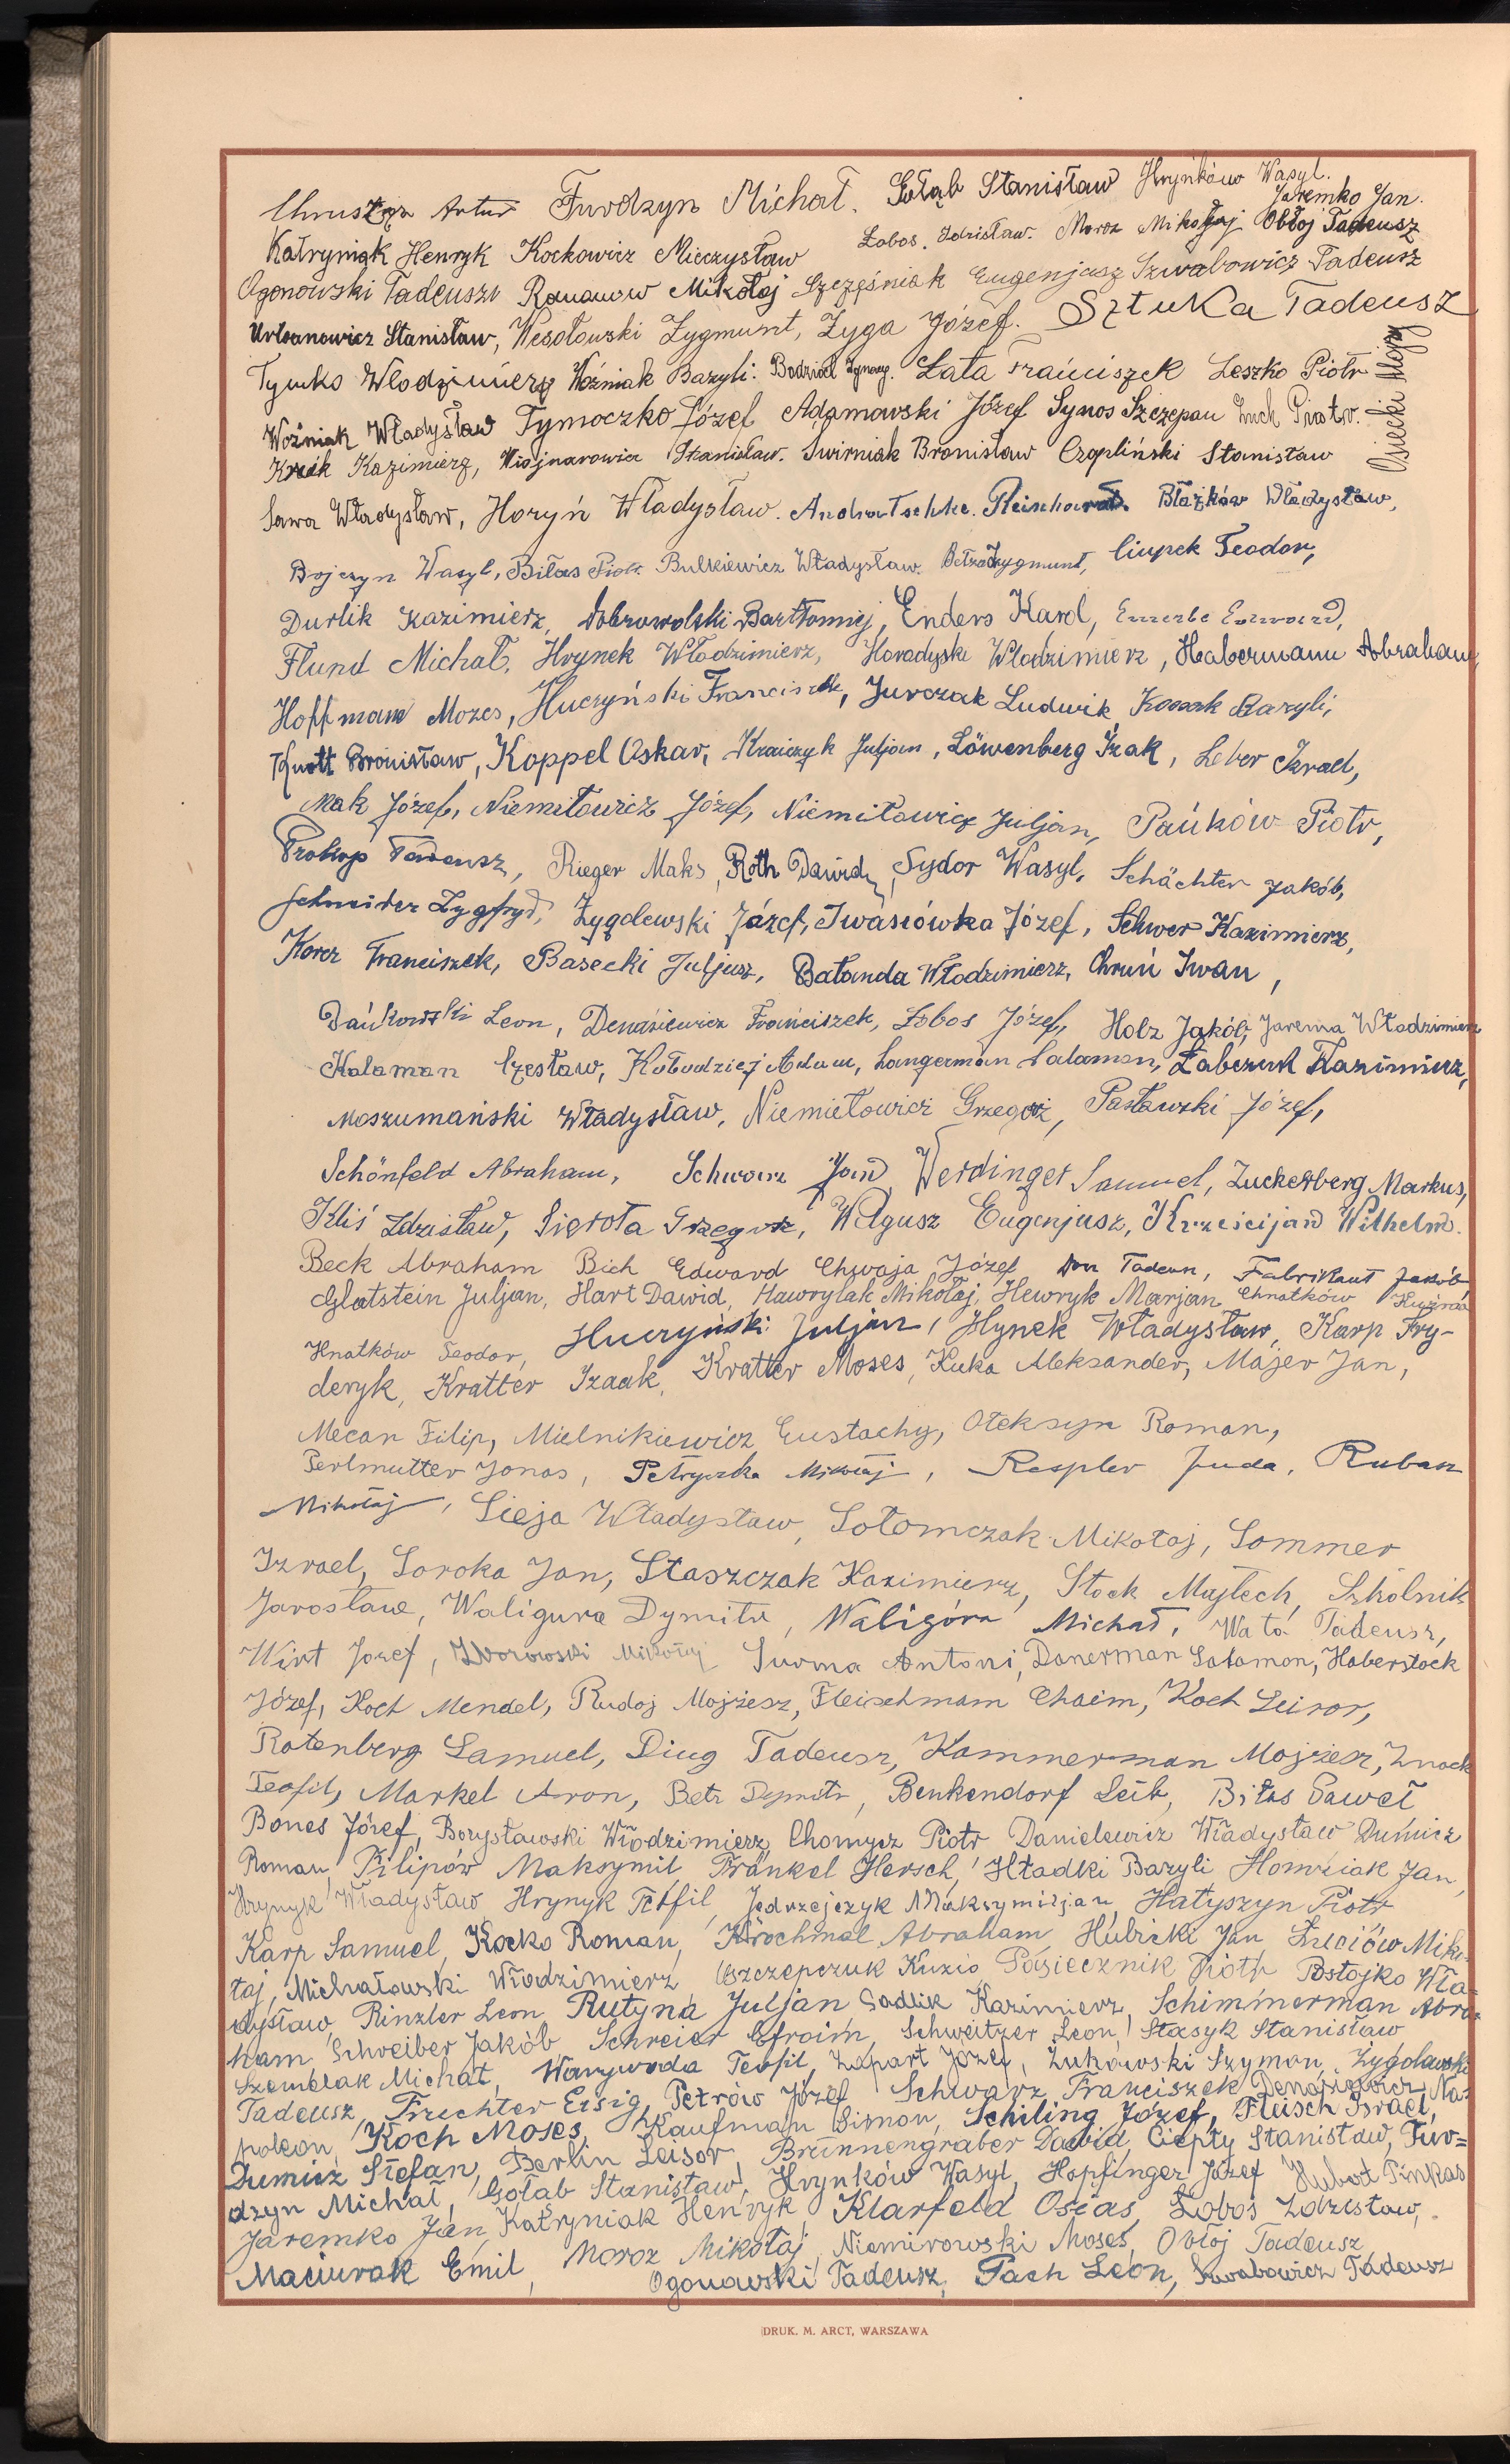 Chrusząz Artur Furdzyn Michał. Gołąb Stanisław Hryńków Wasyl.
Jaremko Jan.
Katryniak Henryk Kockowicz Mieczysław Łobos Zdzisław. Moroz Mikołaj Obłoj Tadeusz
Ogonowski Tadeusz Romanow Mikołaj Szcześniak Eugenjusz Szwabowicz Tadeusz
Urbanowicz Stanisław, Wesołowski Zygmunt, Zyga Józef. Sztuka Tadeusz
Tymko Włodzimierz Woźniak Bazyli. Łata Franciszek Leszko Piotr
Osiecki Alojzy
Woźniak Władysław Tymoczko Józef Adamowski Józef Synos Szczepan Żuch Piotr.
Kazimierz, Wojnarowicz Stanisław. Świrniak Bronisław Czapliński Stanisław
Sawa Władysław, Horyń Władysław. Andratschke Błażków Władysław,
Bojczyn Wasyl, Biłas Piotr Bulkiewicz Władysław. Zygmunt, Ciupek Teodor,
Durlik Kazimierz, Dobrowolski Bartłomiej, Enders Karol, Emerle Edward,
Flund Michał, Hrynek Włodzimierz, Horadyski Włodzimierz, Habermann Abraham,
Hoffman Mozes, Huczyński Franciszek, Jurczak Ludwik, Kossak Bazyli,
Knott Bronisław, Koppel Oskar, Krajczyk Juljan, Löwenberg Izak, Leber Izrael,
Mak Józef, Niemiłowicz Józef, Niemiłowicz Juljan, Pańków Piotr,
Prokop Tadeusz, Rieger Maks, Roth Dawid, Sydor Wasyl, Schächter Jakób,
Schneider Zygfryd, Żygolewski Józef, Iwasiówka Józef, Schwer Kazimierz,
Korcz Franciszek, Basecki Juljusz, Bałanda Włodzimierz, Chruń Iwan,
Dańkowski Leon, Denasiewicz Franciszek, Łobos Józef, Holz Jakób, Jarema Włodzimierz
Kalaman Czesław, Kołodziej Adam, Langerman Salamon, Łabczuk Kazimierz,
Moszumański Władysław, Niemiłowicz Grzegorz, Pasławski Józef,
Schönfeld Abraham, Schwarz Jan, Werdinger Samuel, Zuckerberg Markus,
Kliś Zdzisław, Sierota Grzegorz, Wilgusz Eugenjusz, Krześcijan Wilhelm.
Beck Abraham Bich Edward Chwaja Józef Don Tadeusz, Fabrikant Jakób
Glatstein Juljan, Hart Dawid, Hawrylak Mikołaj, Hewryk Marjan Chnatków Kuźma
Hnatków Teodor, Huczyński Juljan, Hynek Władysław, Karp Fry-
deryk, Kratter Izaak, Kratter Moses, Kuka Aleksander, Majer Jan,
Mecan Filip, Mielnikiewicz Eustachy, Oleksyn Roman,
Perlmutter Jonas, Petryszka Mikołaj, Respler Juda, Rubasz
Mikołaj, Sieja Władysław, Sołomczak Mikołaj, Sommer
Izrael, Soroka Jan, Staszczak Kazimierz, Stock Majlech, Szkolnik
Jarosław, Waligura Dymitr, Waligóra Michał, Wata Tadeusz,
Wirt Józef, Zborowski Mikołaj Surma Antoni, Donerman Salamon, Haberstock
Józef, Koch Mendel, Rudoj Mojżesz, Fleischmam Chaim, Koch Leizor,
Rotenberg Samuel, Diug Tadeusz, Kammerman Mojżesz, Znack
Teofil, Markel Aron, Betz Dymitr, Benkendorf Leib, Biłas Paweł
Bones Józef, Borysławski Włodzimierz, Chomycz Piotr Danielewicz Władysław Dumicz
Roman, Pilipów Maksymil, Fränkel Hersch, Hładki Bazyli Homziak Jan,
Hrynyk Władysław Hrynyk Teofil, Jędrzejczyk Maksymiljan, Hatyszyn Piotr
Karp Samuel, Kocko Roman, Krochmal Abraham, Hubicki Jan Łuciów Miko-
łaj, Michałowski Włodzimierz Oszczepczuk Kuzio Pasiecznik Piotr Postojko Wła-
dysław, Rinzler Leon Rutyna Juljan Sadlik Kazimierz, Schimmerman Abra-
ham, Schreiber Jakób Schreier Efroim, Schweitzer Leon, Stasyk Stanisław
Szemelak Michał, Warywoda Teofil, Zapart Józef, Żukowski Szymon, Żygolawski
Tadeusz, Fruchter Eisig, Petrów Józef Schwarz Franciszek Denasiewicz Na-
poleon, Koch Moses, Kaufman Simon, Schiling Józef, Fleisch Israel,
Dumicz Stefan, Berlin Leisor, Brünnengraber Dawid, Ciepły Stanisław, Fur=
dzyn Michał, Gołąb Stanisław, Hrynków Wasyl, Hopfinger Józef Hubot Pinkas
Jaremko Jan, Katryniak Henryk, Klarfeld Osias, Łoboś Zdzisław,
Maciurak Emil, Moroz Mikołaj, Niemirowski Moses, Obłoj Tadeusz,
Ogonowski Tadeusz, Pach Leon, Szwabowicz Tadeusz
DRUK. M. ARCT, WARSZAWA